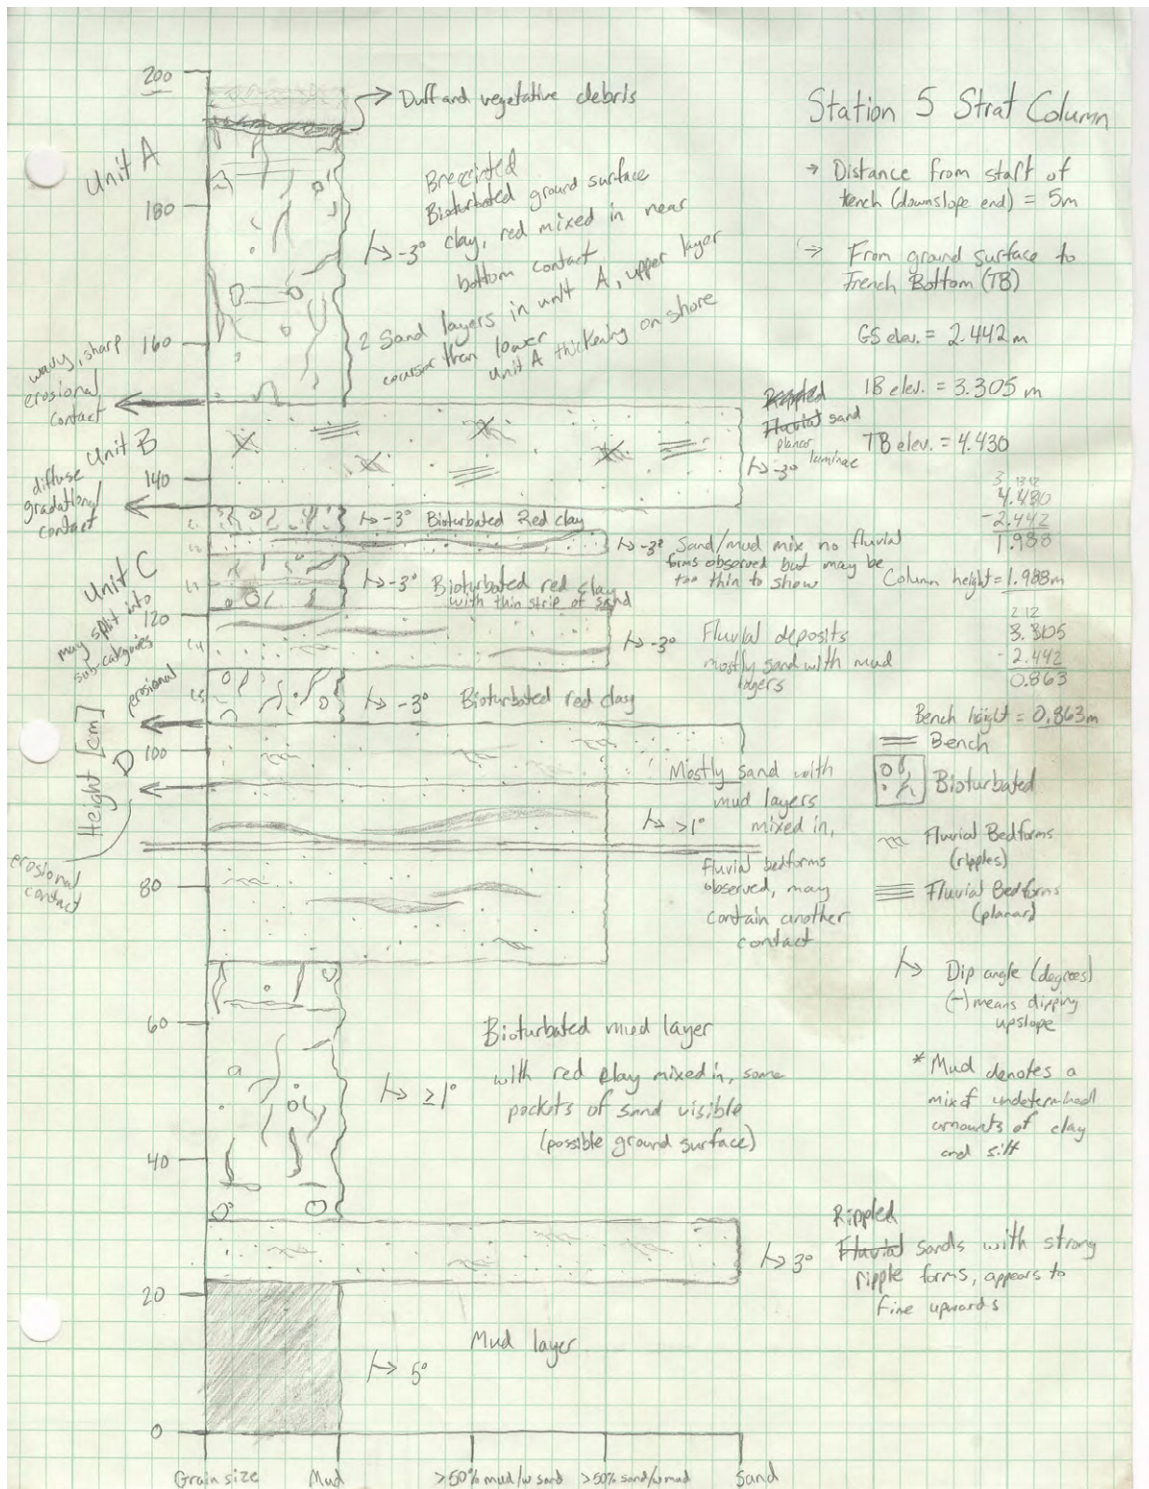 Station 5 Strat Column
→ Distance from start of
trench (downslope end) = 5m
→ From ground surface to
Trench Bottom (TB)
GS elev. = 2.442 m
IB elev. = 3.305 m
TB elev. = 4.430
4.430
-2.442
1.988
Column height = 1.988m
3.305
-2.442
0.863
Bench height = 0.863m
Bench
Bioturbated
Fluvial Bedforms
(ripples)
Fluvial Bedforms
(planar)
Dip angle (degrees)
(-) means dipping
upslope
* Mud denotes a
mix of undetermined
amounts of clay
and silt
200
180
160
140
120
100
80
60
40
20
0
Height [cm]
Unit A
wavy, sharp
erosional
contact
Unit B
diffuse
gradational
contact
Unit C
may split into
sub-categories
erosional
D
erosional
contact
C4
C5
Duff and vegetative debris
Brecciated
Bioturbated ground surface
-3° clay, red mixed in near
bottom contact
2 Sand layers in unit A, upper layer
courser than lower
Unit A thickening on shore
Rippled
Fluvial sand
planar
laminae
-3°
-3° Bioturbated Red clay
-3° Sand/mud mix no fluvial
forms observed but may be
too thin to show
-3° Bioturbated red clay
with thin strip of sand
-3° Fluvial deposits
mostly sand with mud
layers
-3° Bioturbated red clay
Mostly sand with
mud layers
>1° mixed in,
fluvial bedforms
observed, may
contain another
contact
Bioturbated mud layer
≥1° with red clay mixed in, some
pockets of sand visible
(possible ground surface)
Rippled
3° Fluvial sands with strong
ripple forms, appears to
fine upwards
Mud layer
5°
Grain size
Mud
>50% mud/w sand
>50% sand/w mud
Sand